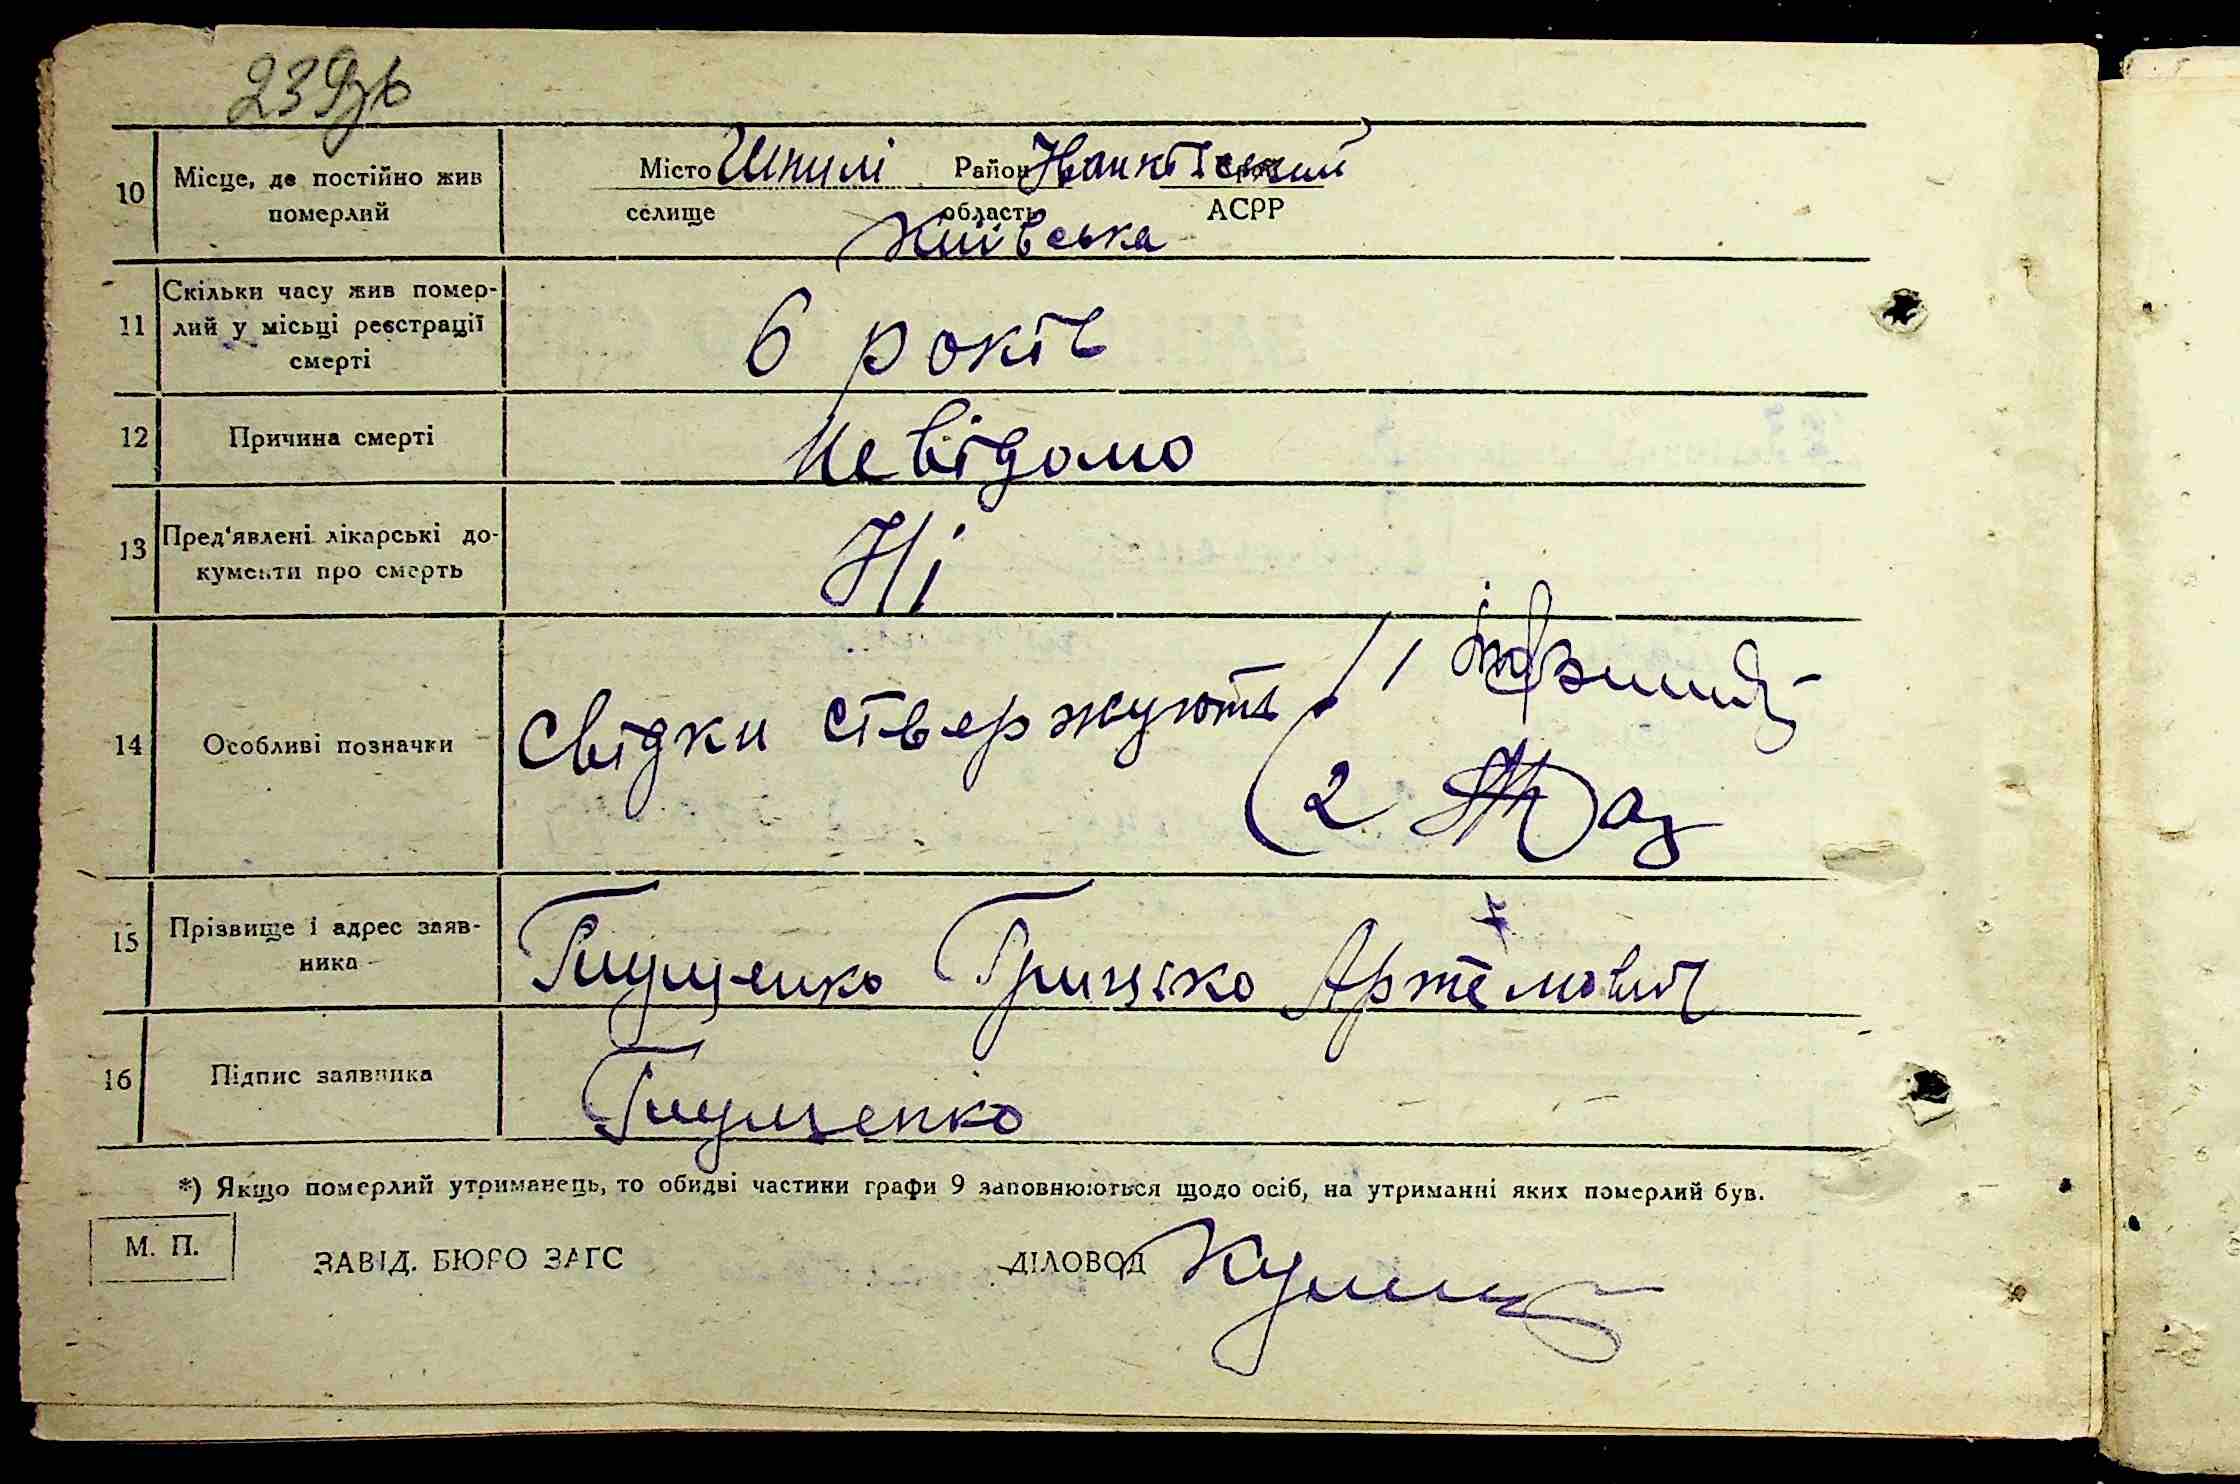 239зв
10 Місце, де постійно жив Місто Шпилі Район Іванківський
померлий селище область АСРР
Київська
Скільки часу жив помер-
11 лий у місьці реєстрації 6 років
смерті
12 Причина смерті Невідомо
13 Пред'явлені лікарські до- Ні
кументи про смерть
14 Особливі позначки Свідки ствержують 1
2
15 Прізвище і адрес заяв- Грицько Артемович
ника
16 Підпис заявника
*) Якщо померлий утриманець, то обидві частини графи 9 заповнюються щодо осіб, на утриманні яких померлий був.
М. П. ЗАВІД. БЮРО ЗАГС ДІЛОВОД